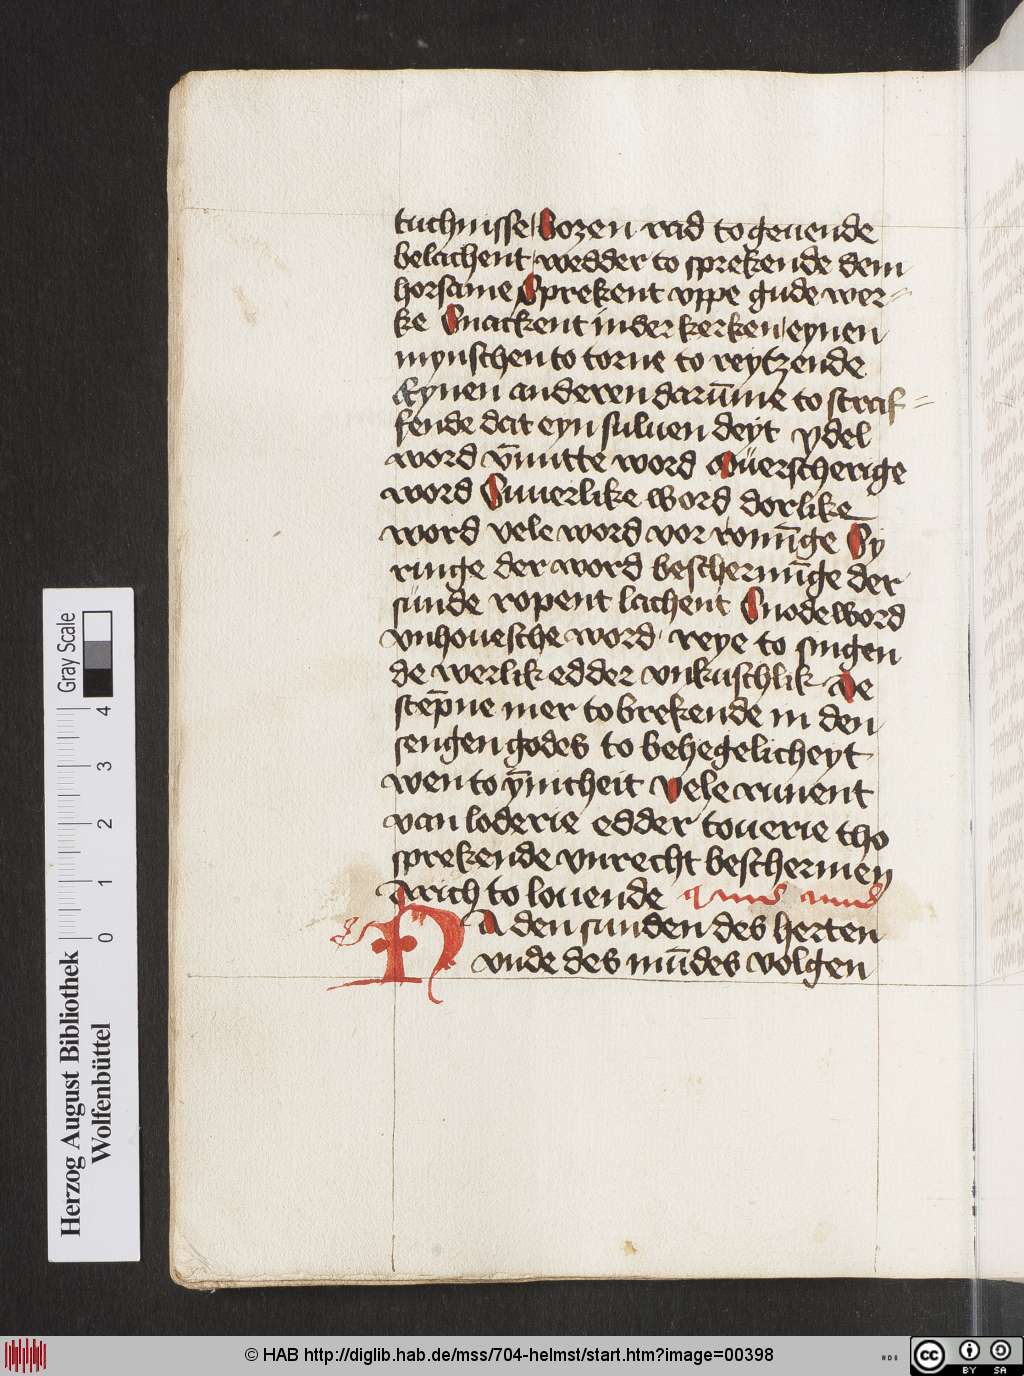 tuchnisse Bozen rad to geuende
belachent wedder to sprekende dem
horsame Sprekent vppe gude wer-
ke Snackent in der kerken eynen
mynschen to torne to reytzende
Eynen anderen darūme to straf-
fende dat eyn suluen deyt ydel
word v̄nutte word Ouerscherige
word Suuerlike word dorlike
word vele word vor romīge By
ringe der word beschermīge der
sunde ropent lachent Snode word
vnhouesche word reye to singen
de werlik edder vnkuschlik De
step̄ne mer to brekende in den
sengen godes to behegelicheyt
wen to ȳnicheit Vele runent
van loderie edder touerie tho
sprekende vnrecht beschermen
to louende
NA den sunden des herten
vnde des mūdes volgen
Herzog August Bibliothek
Wolfenbüttel
0 1 2 3 4
Gray Scale
© HAB http://diglib.hab.de/mss/704-helmst/start.htm?image=00398
cc BY SA